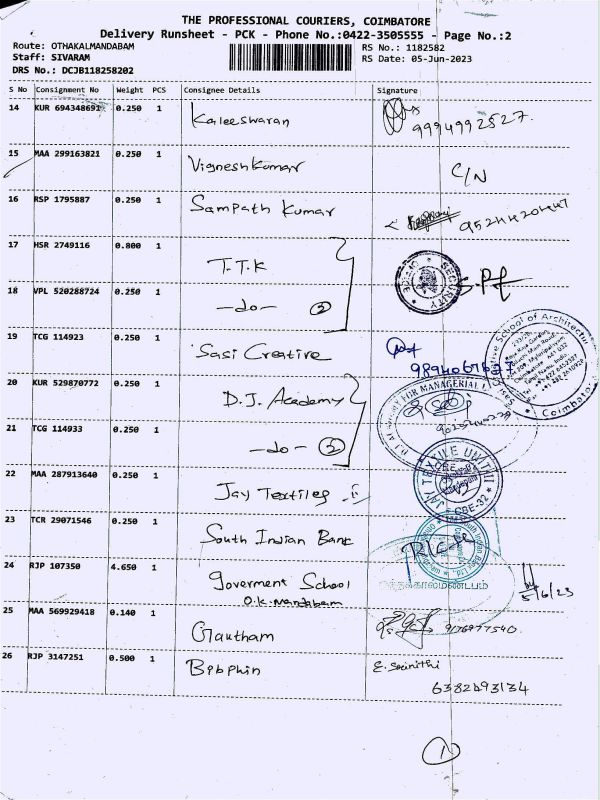 THE PROFESSIONAL COURIERS, COIMBATORE
Delivery Runsheet - PCK - Phone No.:0422-3505555 - Page No.:2
Route: OTHAKALMANDABAM
RS No.: 1182582
Staff: SIVARAM
RS Date: 05-Jun-2023
DRS No.: DCJB118258202
S No Consignment No Weight PCS Consignee Details Signature
14 KUR 694348691 0.250 1 Kaleeswaran 9994992527.
15 MAA 299163821 0.250 1 Vigneshkumar C/N
16 RSP 1795887 0.250 1 Sampath Kumar
17 HSR 2749116 0.800 1 T.T.K
SECURITY
18 VPL 520288724 0.250 1 -do- 2
19 TCG 114923 0.250 1 Sasi Creative
School of Architecture
Coimbatore
20 KUR 529870772 0.250 1 D.J. Academy
FOR MANAGERIAL
21 TCG 114933 0.250 1 -do- 2
22 MAA 287913640 0.250 1 Jay Textiles
JAY TEXTILE UNIT II
CBE-32
23 TCR 29071546 0.250 1 South Indian Bank
24 RJP 107350 4.650 1 Goverment School
O.K. Mandabam
5/6/23
25 MAA 569929418 0.140 1 Gautham 9176977540.
26 RJP 3147251 0.500 1 Bibphin E. Sainithi
6382493134
1